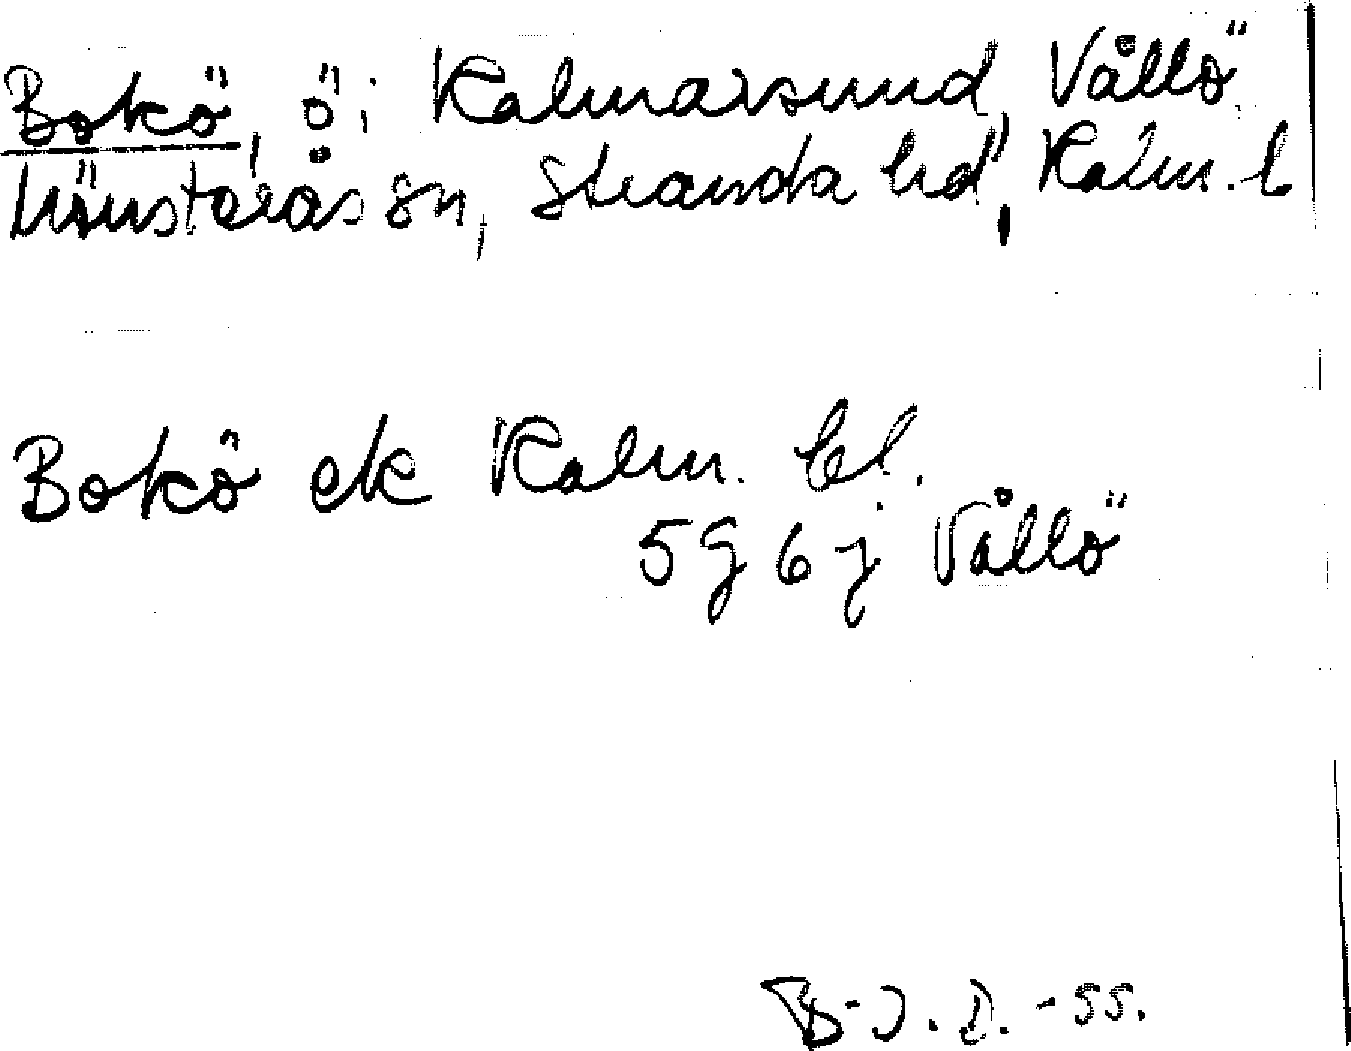 Bokö, ö i Kalmarsund, Vållö
Mönsterås sn, Stranda hd, Kalm. l
Bokö ek Kalm. bl.
5G 6j Vållö
B-J. D. -55.